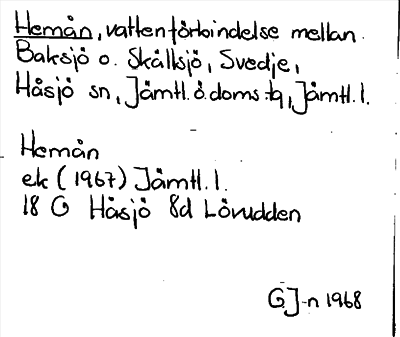 Hemån, vattenförbindelse mellan
Baksjö o. Skållsjö, Svedje,
Håsjö sn, Jämtl.ö.doms:q, Jämtl.l.
Hemån
ek (1967) Jämtl.l.
18 G Håsjö 8d Lövudden
G.J-n 1968